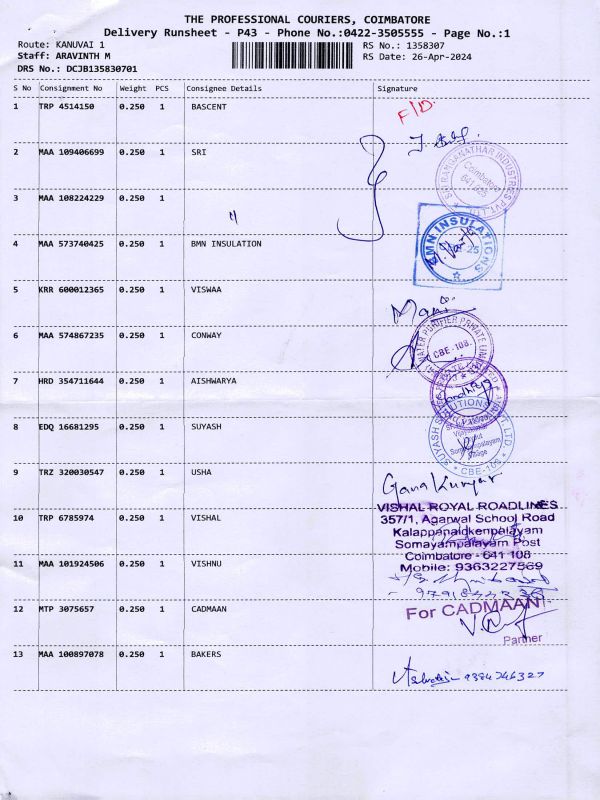 THE PROFESSIONAL COURIERS, COIMBATORE
Delivery Runsheet - P43 - Phone No.:0422-3505555 - Page No.:1
Route: KANUVAI 1 RS No.: 1358307
Staff: ARAVINTH M RS Date: 26-Apr-2024
DRS No.: DCJB135830701
S No Consignment No Weight PCS Consignee Details Signature
1 TRP 4514150 0.250 1 BASCENT F/D.
2 MAA 109406699 0.250 1 SRI
SRI RANGANATHAR INDUSTRIES PVT. LTD. Coimbatore 641 025
3 MAA 108224229 0.250 1 "
4 MAA 573740425 0.250 1 BMN INSULATION BMN INSULATIONS 25
5 KRR 600012365 0.250 1 VISWAA Mani
6 MAA 574867235 0.250 1 CONWAY WATER PURIFIER PRIVATE LIMITED CBE-108.
7 HRD 354711644 0.250 1 AISHWARYA
8 EDQ 16681295 0.250 1 SUYASH SUYASH SOLUTIONS PVT. LTD. CBE-108
9 TRZ 320030547 0.250 1 USHA Gana Kumar
10 TRP 6785974 0.250 1 VISHAL VISHAL ROYAL ROADLINES
357/1, Agarwal School Road
Kalappanaickenpalayam
Somayampalayam Post
Coimbatore - 641 108
Mobile: 9363227569
11 MAA 101924506 0.250 1 VISHNU
12 MTP 3075657 0.250 1 CADMAAN For CADMAAN
Partner
13 MAA 100897078 0.250 1 BAKERS 9384746327